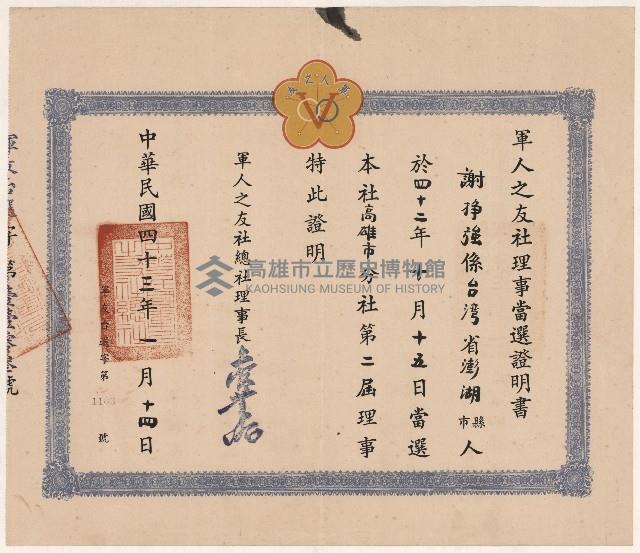 軍人之友社理事當選證明書
謝掙強係台灣省澎湖縣市人
於四十二年 月十五日當選
本社高雄市分社第二屆理事
特此證明
軍人之友社總社理事長
中華民國四十三年一月十四日
號
軍人之友
V
高雄市立歷史博物館
KAOHSIUNG MUSEUM OF HISTORY